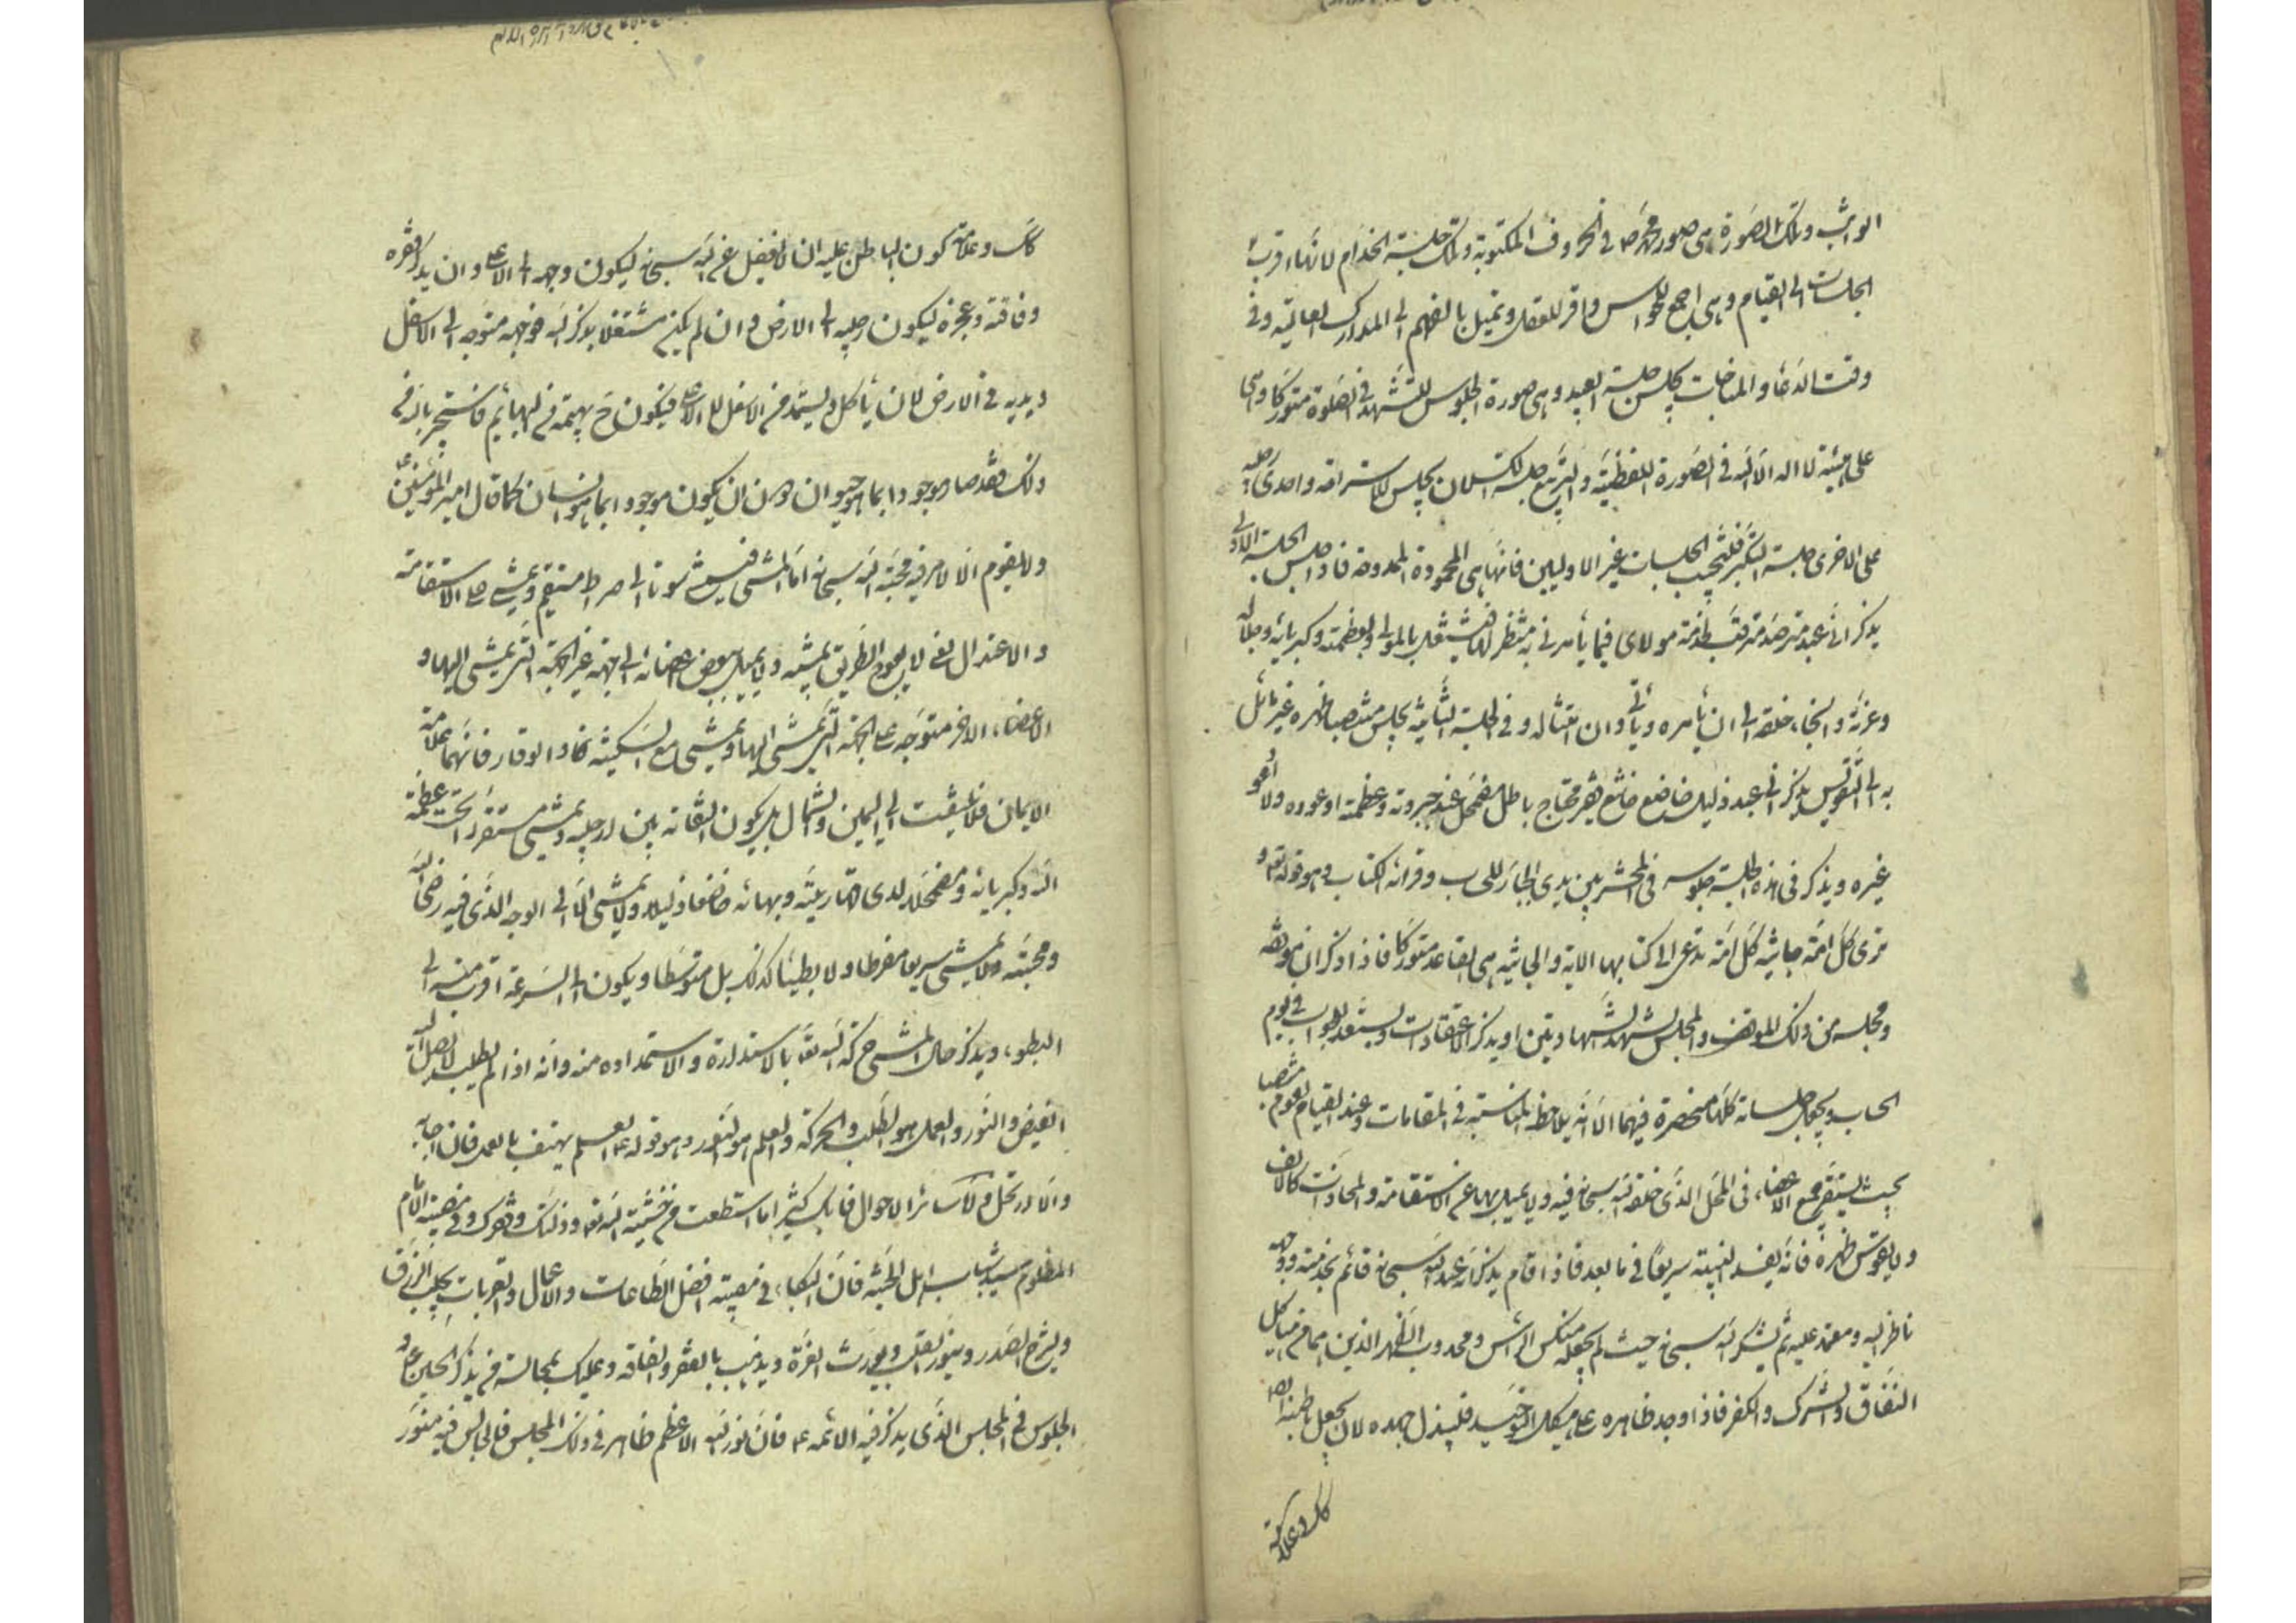 الواثب وتلك الصورة هى صورة محمد ص فى الحروف المكتوبة وتلك جلسة الخدام لانها اقرب
الجلسات الى القيام وهى اجمع للحواس واقر للعقل وتميل بالفهم الى المدارك العالية وفى
وقت الدعاء والمناجات يجلس جلسة العبيد وهى صورة الجلوس للتشهد فى الصلوة متوركا وهى
على هيئة لا اله الا الله فى الصورة اللفظية والتربع جلسة الكسلان يجلس للاستراحة واحدى رجليه
على الاخرى جلسة التكبر فليجتنب الجلسات غير الاوليين فانها هى المحمودة الممدوحة فاذا جلس الجلسة الاولى
يذكر انى عبد مترصد مترقب لخدمة مولاى فيما يأمرنى به منتظر لها فيشتغل بالمولى وبعظمته وكبريائه وجلاله
وعزته والتجاء خلقه الى ان يأمره ويأتى وان امتثاله وفى الجلسة الثانية يجلس منتصبا ظهره غير مائل
به الى التقويس يذكر انى عبد ذليل خاضع خاشع فقير محتاج باطل مضمحل عند جبروته وعظمته اوعوده ولا ادعو
غيره ويذكر فى هذه الجلسة جلوسه فى المحشر بين يدى الجبار للحساب وقرائة الكتاب وهو قوله تعالى و
ترى كل امة جاثية كل امة تدعى الى كتابها الاية والجاثية هى القاعد متوركا فاذا ذكر ان موقفه
ومجلسه من ذلك الموقف والمجلس يتشهد الشهادتين او يذكر الاعتقادات ويستعد للجواب فى يوم
الحساب ويجعل جلساته كلها منحصرة فيهما الا انه يلاحظ المناسبة فى المقامات وعند القيام يقوم منتصبا
بحيث يستقر جميع الاعضاء فى المحل الذى خلقه الله سبحانه فيه ولا يميل بها عن الاستقامة والمحاذات كالالف
ولا يقوس ظهره فانه يفسد البنية سريعا فى ما بعد فاذا قام يذكر انه عبد الله سبحانه قائم بخدمته ووجهه
ناظر اليه ومعتمد عليه ثم يشكر الله سبحانه حيث لم يجعله منكس الرأس ومحدوب الظهر الذين هما من هياكل
النفاق والشرك والكفر فاذا وجد ظاهره على هيكل التوحيد فليبذل جهده لان يجعل باطنه ايضا
كك وعلامة
كك وعلامة كون الباطن عليه ان لا يغفل عن الله سبحانه ليكون وجهه الى الاعلى وان يذكر فقره
وفاقته وعجزه ليكون رجليه الى الارض وان لم يكن مشتغلا بذكر الله فوجهه متوجه الى الاسفل
ويديه فى الارض لان يأكل ويستمد من الاسفل لا الاعلى فيكون ح بهيمة من البهائم فاستجر بالله من
ذلك فقد صار موجودا بما هو حيوان دون ان يكون موجودا بما هو انسان كما قال امير المؤمنين ع
ولا يقوم الا لامر فيه محبة الله سبحانه اما المشى فليمش سويا الى صراط مستقيم ويمشى على الاستقامة
والاعتدال يعنى لا يعوج الطريق بمشيه ولا يميل ببعض اعضائه الى جهة غير الجهة التى يمشى اليها و
الاعضاء الاخر متوجه على الجهة التى يمشى اليها ويمشى مع السكينة والوقار فانهما علامة
الايمان فلا يلتفت الى اليمين والشمال بل يكون التفاته بين رجليه ويمشى مستقرا تحت عظمة
الله وكبريائه ومضمحلا لدى قهاريته وبهائه خاضعا ذليلا ولا يمشى الا الى الوجه الذى فيه رضى الله
ومحبته ولا يمشى سريعا مفرطا ولا بطيئا كذلك بل متوسطا ويكون الى السرعة اقرب منه الى
البطوء ويذكر حال المشى حركته الى الله تعالى بالاستدارة والاستمداده منه وانه اذا لم يطلب لا يصل اليه
الفيض والنور والعمل هو الطلب والحركة والعلم هو النور وهو قوله ع العلم يهتف بالعمل فان اجابه
والا ارتحل ولا سائر الاحوال فابك كثيرا ما استطعت من خشية الله تعالى وذلتك وفقرك وفى مصيبة الامام
المظلوم سيد شباب اهل الجنة فان البكاء فى مصيبته افضل الطاعات والاعمال والقربات يجلب الرزق
ويشرح الصدر وينور القلب ويورث العزة ويذهب بالفقر والفاقة وعليك بمجالسة من يذكر الحسين ع و
الجلوس فى المجلس الذى يذكر فيه الائمة ع فان نور الله الاعظم ظاهر فى ذلك المجلس فالجالس فيه منور